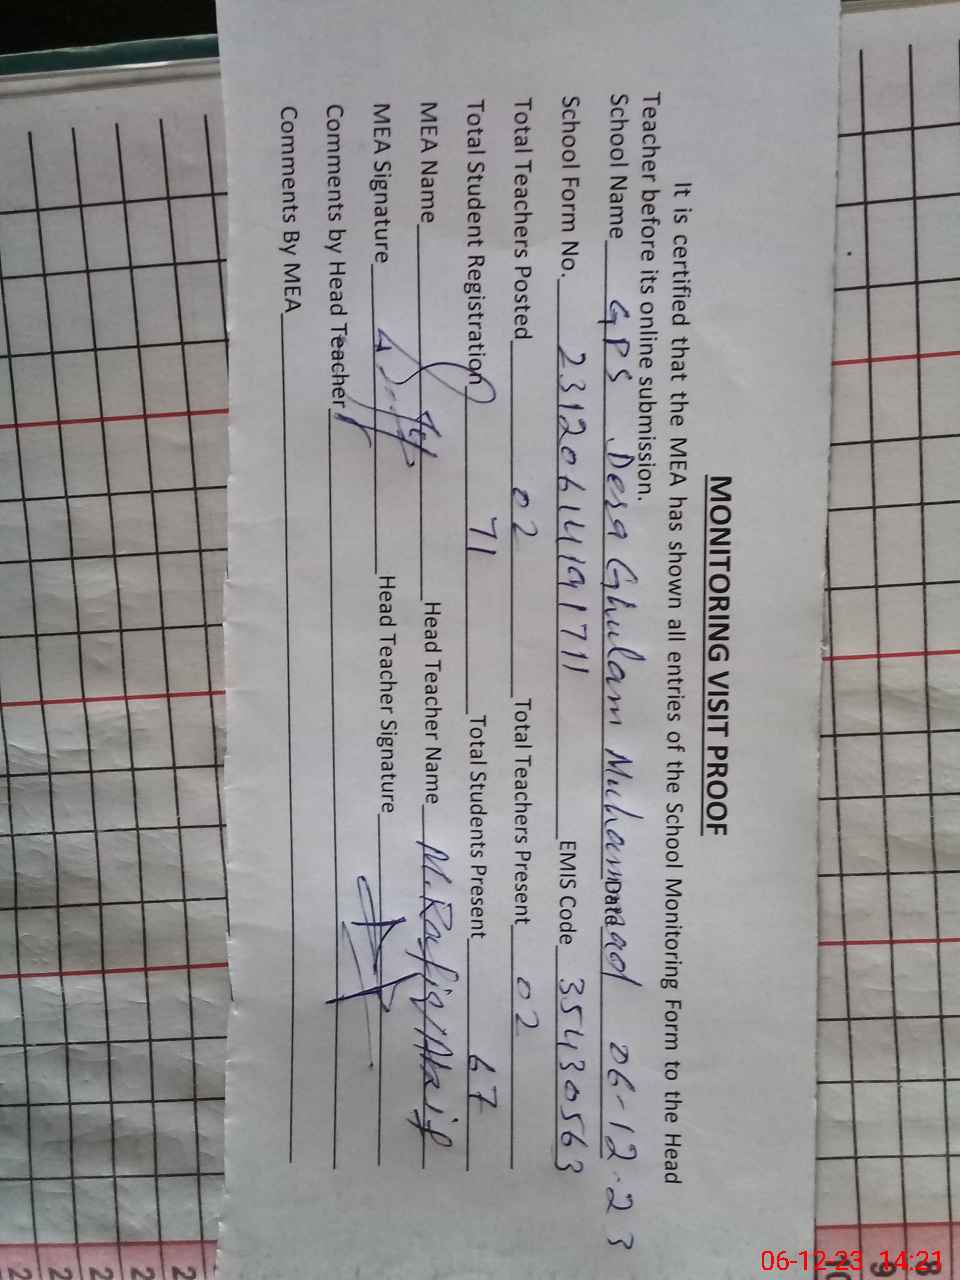 MONITORING VISIT PROOF
It is certified that the MEA has shown all entries of the School Monitoring Form to the Head
Teacher before its online submission.
School Name GPS Dera Ghulam Muhammad Date 06-12-23
School Form No. 23120614191711 EMIS Code 35430563
Total Teachers Posted 02 Total Teachers Present 02
Total Student Registration 71 Total Students Present 67
MEA Name Head Teacher Name M. Rafiq
MEA Signature Head Teacher Signature
Comments by Head Teacher
Comments By MEA
8
9
10
2
2
2
2
2
06-12-23 14:21